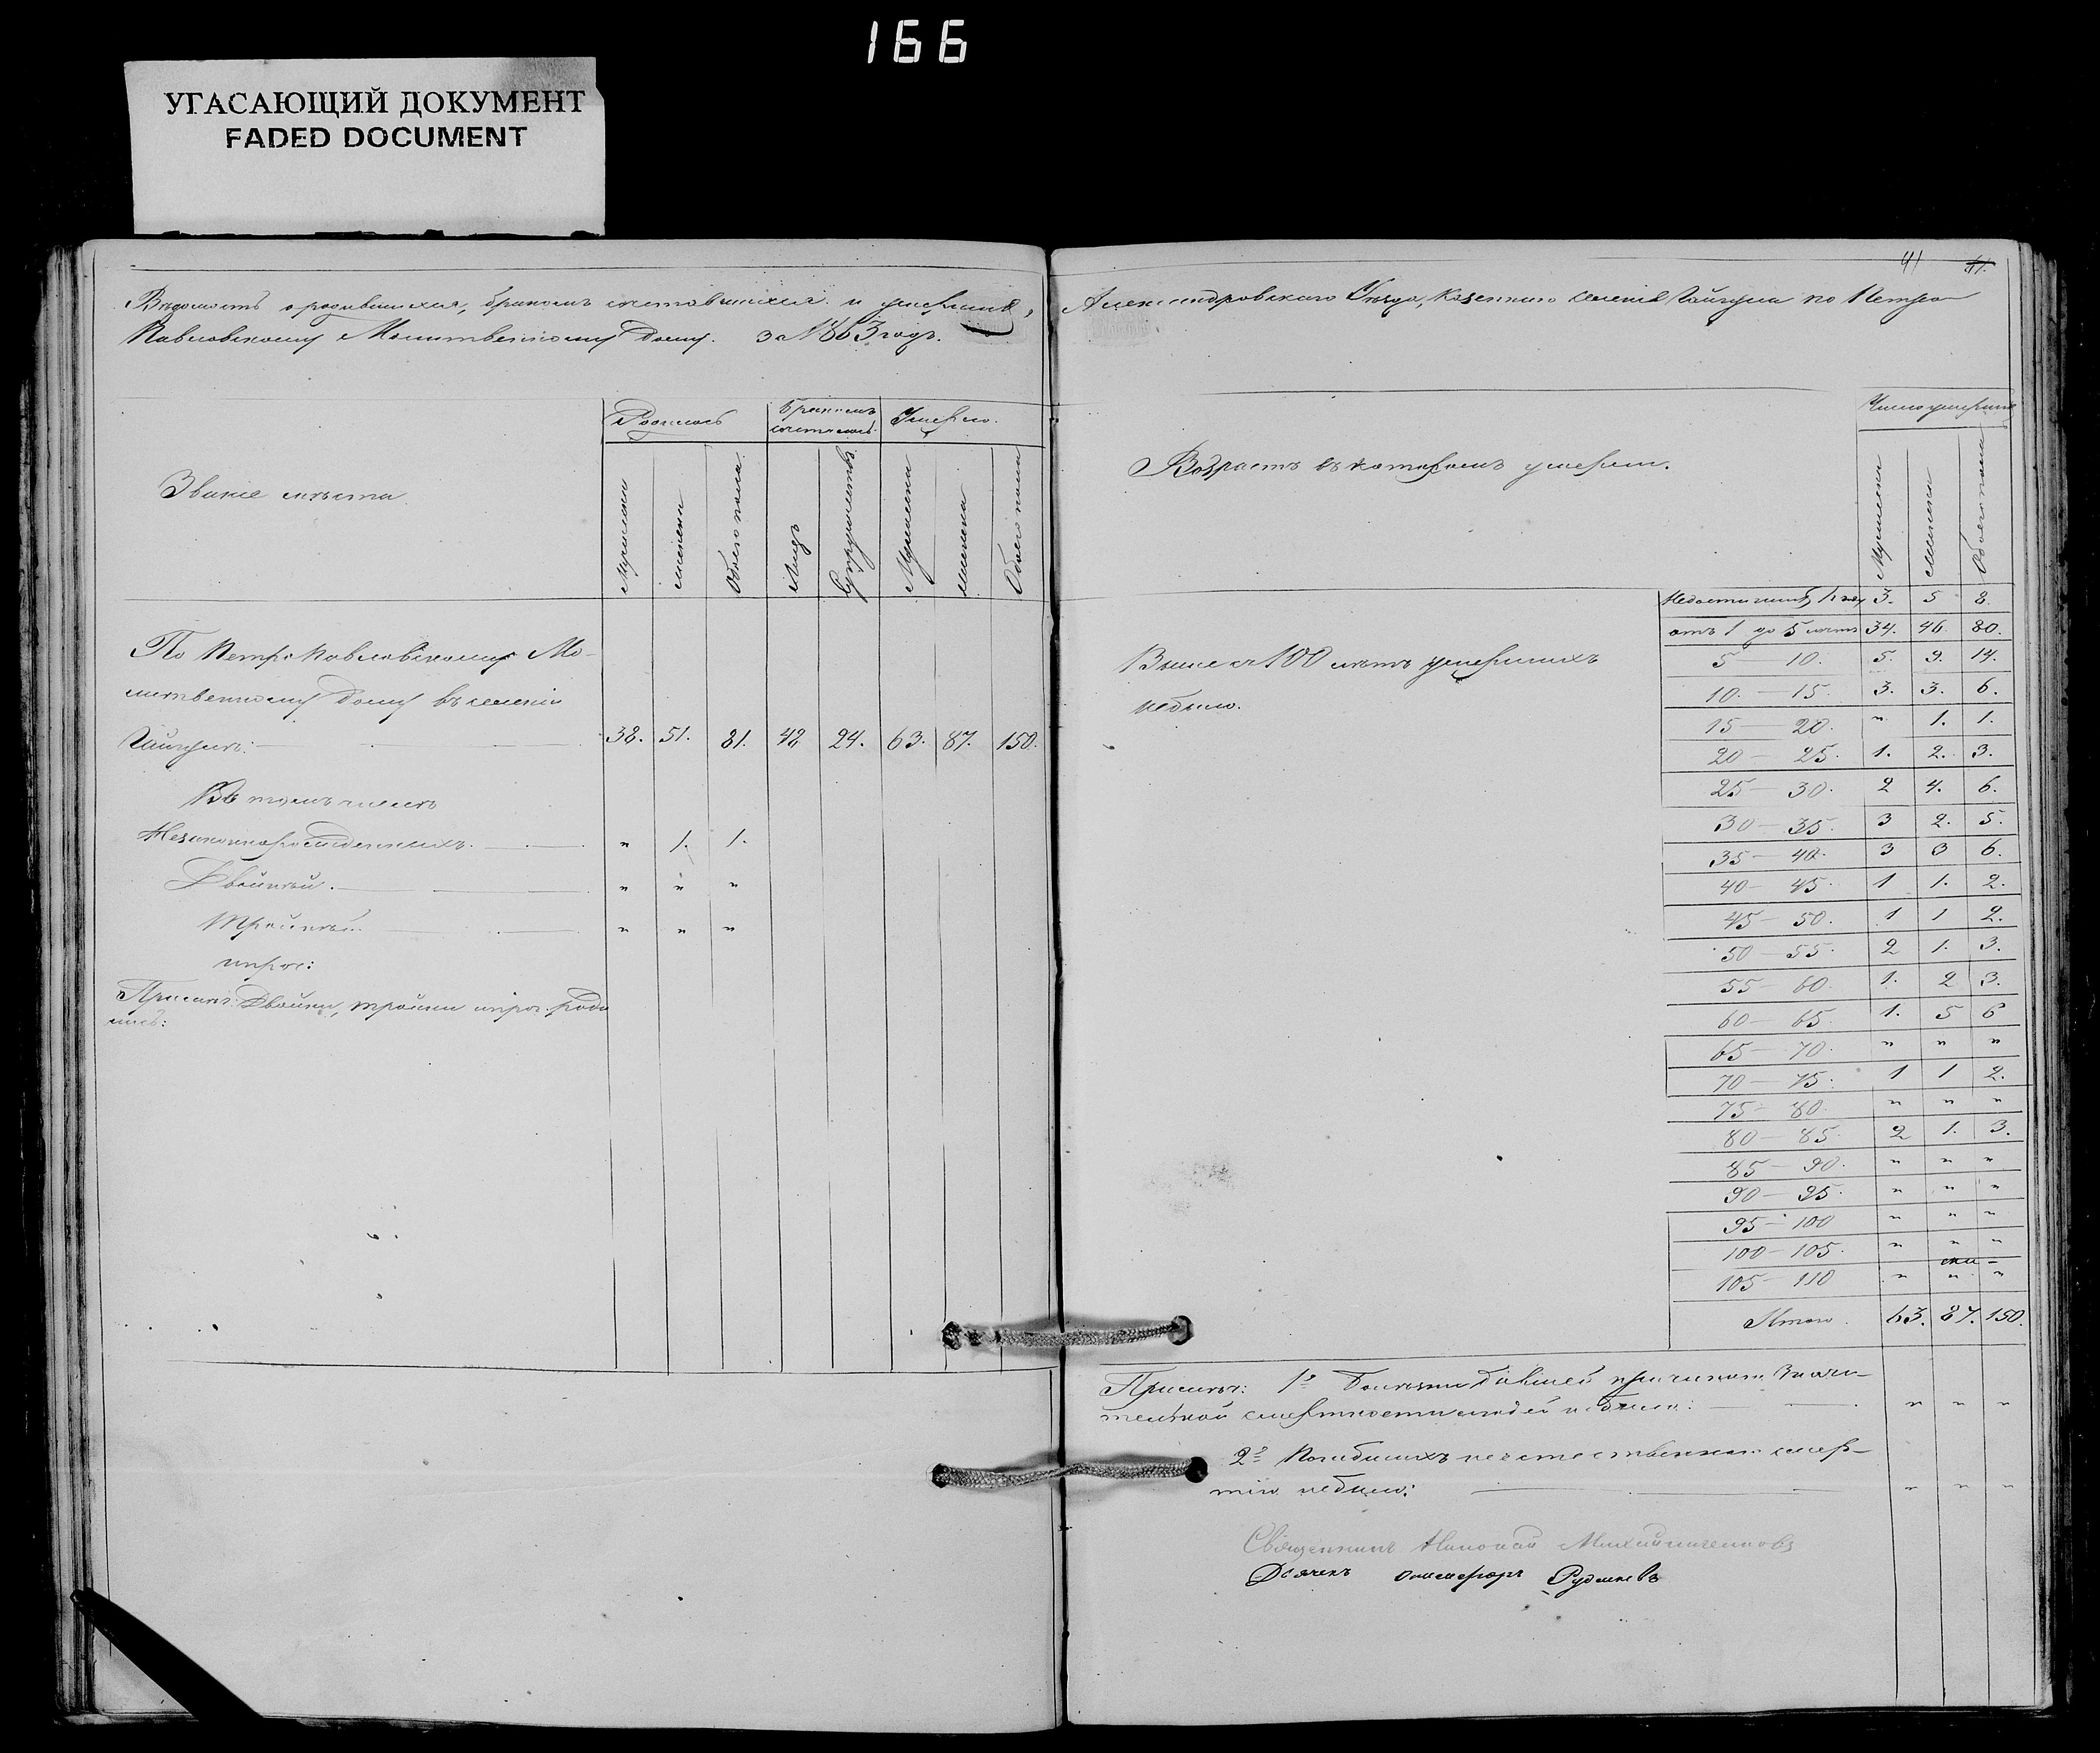 166
УГАСАЮЩИЙ ДОКУМЕНТ
FADED DOCUMENT
41 41.
Вѣдомость о родившихся, бракомъ сочетавшихся и умершихъ, Александровскаго Уѣзда, Казеннаго селенія Гайчула по Петро
Павловскому Молитвенному Дому. За 1863 годъ.
Званіе мѣста
Родилось
Бракомъ
сочеталось
Умерло.
Мужеска
женска
Обоего пола
Лицъ
Супружествъ
Мужеска
женска
Обоего пола
По Петро Павловскому Мо-
литвенному Дому въ селеніи
Гайчулѣ: 38. 51. 81. 48 24. 63. 87. 150.
Въ томъ числѣ
Незаконнорожденныхъ. " 1. 1.
Двойней. " " "
Тройней. " " "
и проч:
Примѣч: Двойни, тройни и проч. роди
лись:
Возрастъ въ которомъ умерли.
Число умершихъ
Мужеска
женска
Обоего пола
Выше ста 100 лѣтъ умершихъ
небыло.
Недостигшихъ 1 году 3. 5 8.
отъ 1 до 5 лѣтъ 34. 46. 80.
5 — 10. 5. 9. 14.
10. — 15. 3. 3. 6.
15 — 20. " 1. 1.
20 — 25. 1. 2. 3.
25 — 30. 2 4. 6.
30 — 35. 3 2. 5.
35 — 40. 3 3 6.
40 — 45. 1 1. 2.
45 — 50. 1 1 2.
50 — 55. 2 1. 3.
55 — 60. 1. 2 3.
60 — 65. 1. 5 6
65 — 70. " " "
70 — 75. 1 1 2.
75 — 80. " " "
80 — 85. 2 1. 3.
85 — 90. " " "
90 — 95. " " "
95 — 100 " " "
100 — 105. " " "
105 — 110 " " "
Итого 63. 87. 150.
Примѣч: 1е Болѣзни бывшей причиною значи-
тельной смертности людей небыло: " " "
2е Погибшихъ неестественною смер-
тію небыло: " " "
Священникъ Николай Михайличенковъ
Дьячекъ Онисифоръ Рудневъ